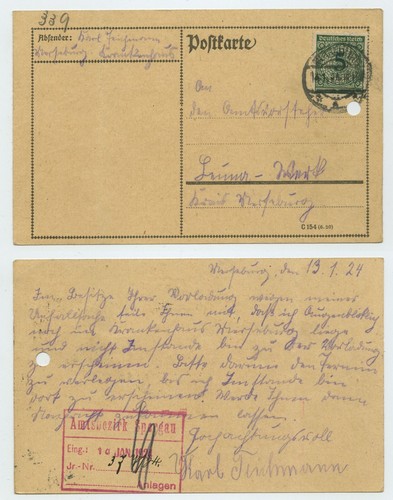 339
Absender: Karl Teichmann
Merseburg Krankenhaus
Postkarte
Deutsches Reich
An
den Amtsvorsteher
Leuna-Werk
Kreis Merseburg
C 154
Merseburg, den 13.1.24
Im Besitze Ihrer Vorladung wegen meines
teile Ihnen mit, daß ich Augenblicklich
noch im Krankenhaus Merseburg liege
und nicht Imstande bin zu der Vorladung
zu erscheinen. Bitte darum den Termin
zu verlegen, bis ich Imstande bin
dort zu erscheinen. Werde Ihnen dann
Nachricht zukommen lassen.
Hochachtungsvoll
Karl Teichmann
Amtsbezirk Spergau
Eing.:
Jr.-Nr.
Anlagen